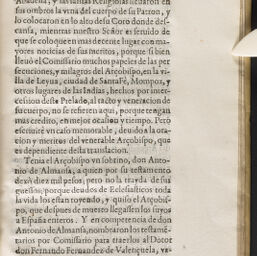 Abadesa, y las santas Religiosas lleuaron en
sus ombros la vrna del cuerpo de su Patron, y
lo colocaron en lo alto de su Coro donde des-
cansa, mientras nuestro Señor es seruido de
que se coloque en mas decente lugar con ma-
yores noticias de sus meritos, porque si bien
lleuò el Comissario muchos papeles de las per
secuciones, y milagros del Arçobispo, en la vi-
lla de Leyua, ciudad de Santa Fè, Mompox, y
otros lugares de las Indias, hechos por inter-
cession deste Prelado, al tacto y veneracion de
su cuerpo, no se refieren aqui, porque tengan
mas credito, en mejor ocasion y tiempo. Pero
escriuirè vn caso memorable, deuido a la ora-
cion y meritos del venerable Arçobispo, que
es dependiente desta translacion.
Tenia el Arçobispo vn sobrino, don Anto-
nio de Almansa, a quien por su testamento
dexò diez mil pesos, pero no la trayda de sus
huessos, porque deudos de Eclesiasticos toda
la vida los estan royendo, y quiso el Arçobis-
po, que despues de muerto llegassen los suyos
a España enteros. Y en competencia de don
Antonio de Almansa, nombraron los testamẽ-
tarios por Comissario para traerlos al Dotor
don Fernando Fernandez de Valençuela, va-